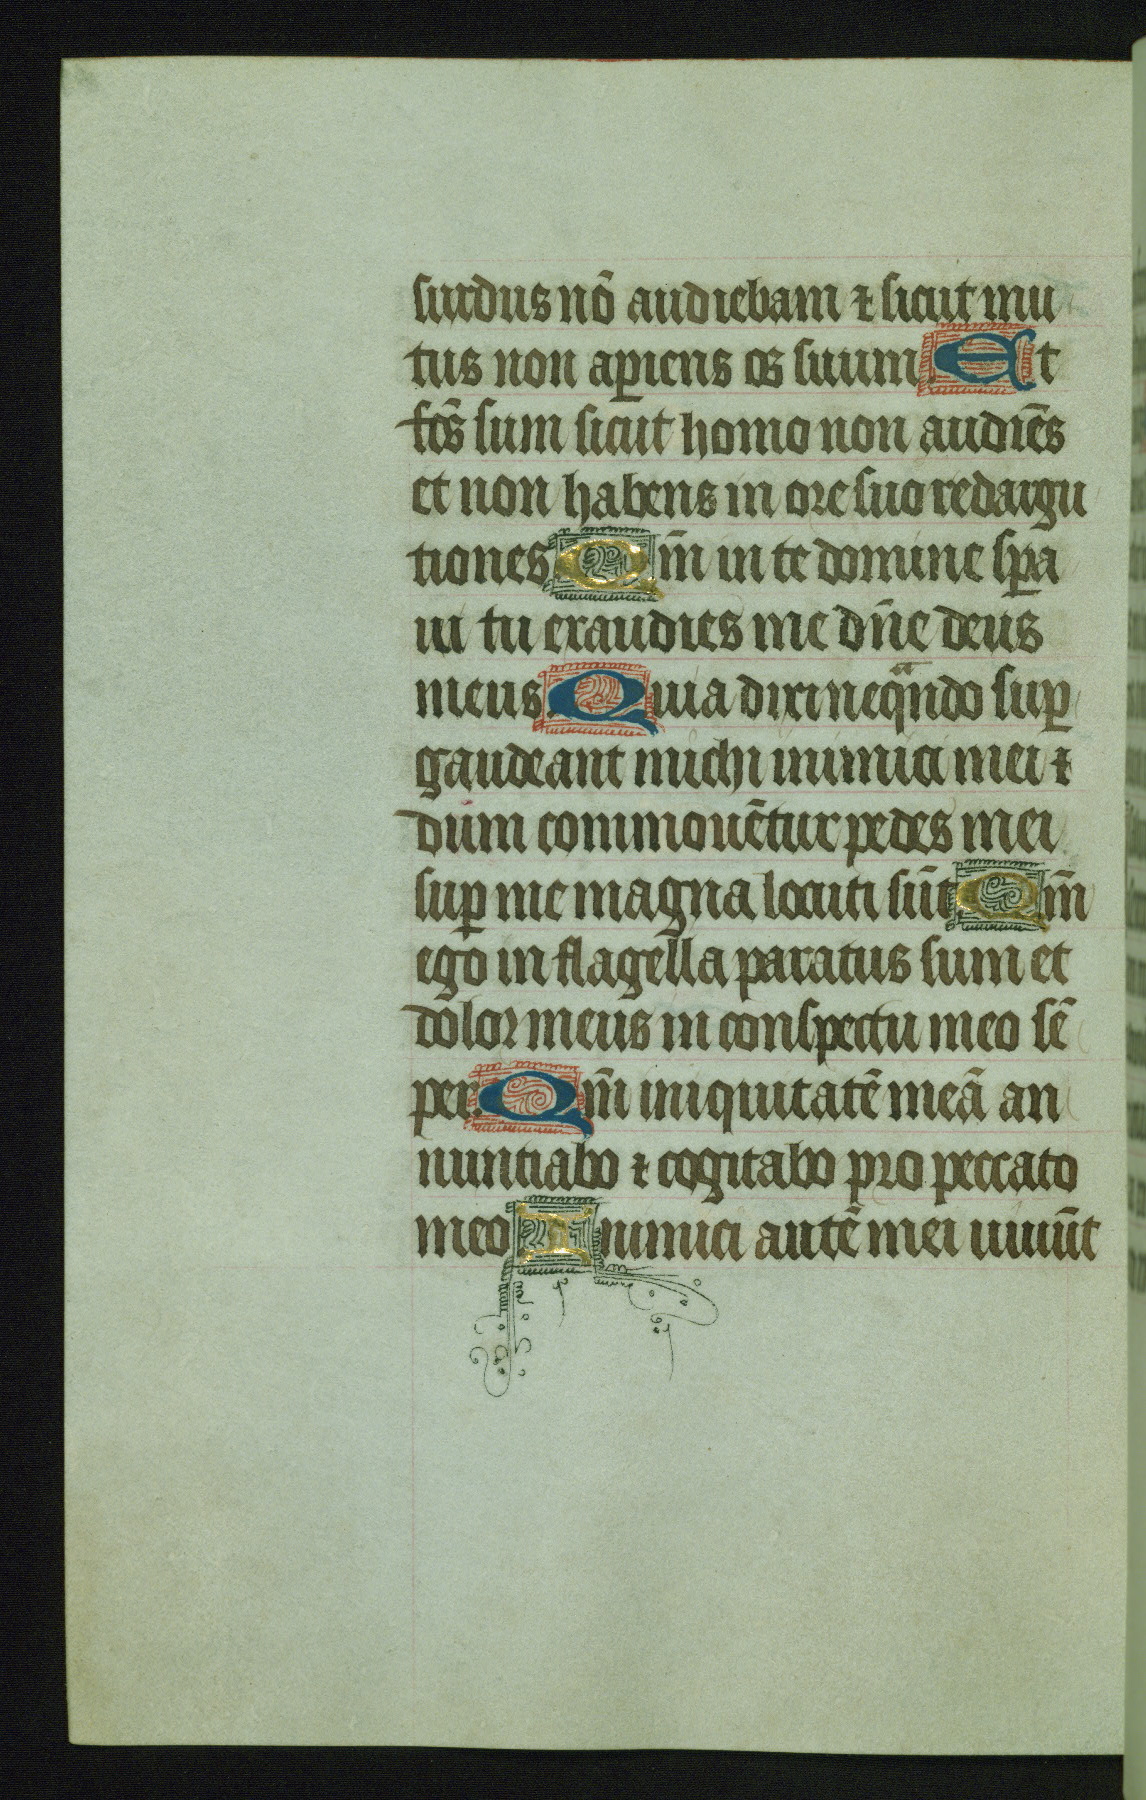 surdus nō audiebam ⁊ sicut mu
tus non apiens os suum. Et
fc̄s sum sicut homo non audiēs
et non habens in ore suo redargu
tiones. Qm̄ in te domine spa
ui tu exaudies me dn̄e deus
meus. Quia dixi neqᷓndo suꝑ
gaudeant michi inimici mei ⁊
dum commouētur pedes mei
suꝑ me magna locuti sūt. Qm̄
ego in flagella paratus sum et
dolor meus in conspectu meo sē
per. Qm̄ iniquitatē meā an
nuntiabo ⁊ cogitabo pro peccato
meo. Inimici autē mei uiuūt